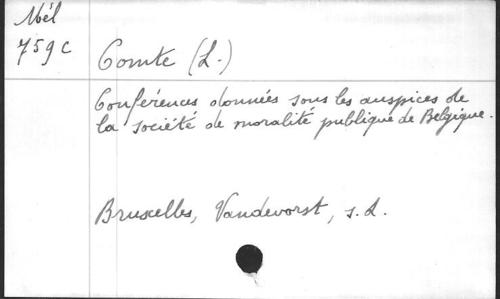 Mél
759 C
Comte (L.)
Conférences données sous les auspices de
la société de moralité publique de Belgique.
Bruxelles, Vandevorst, s.d.